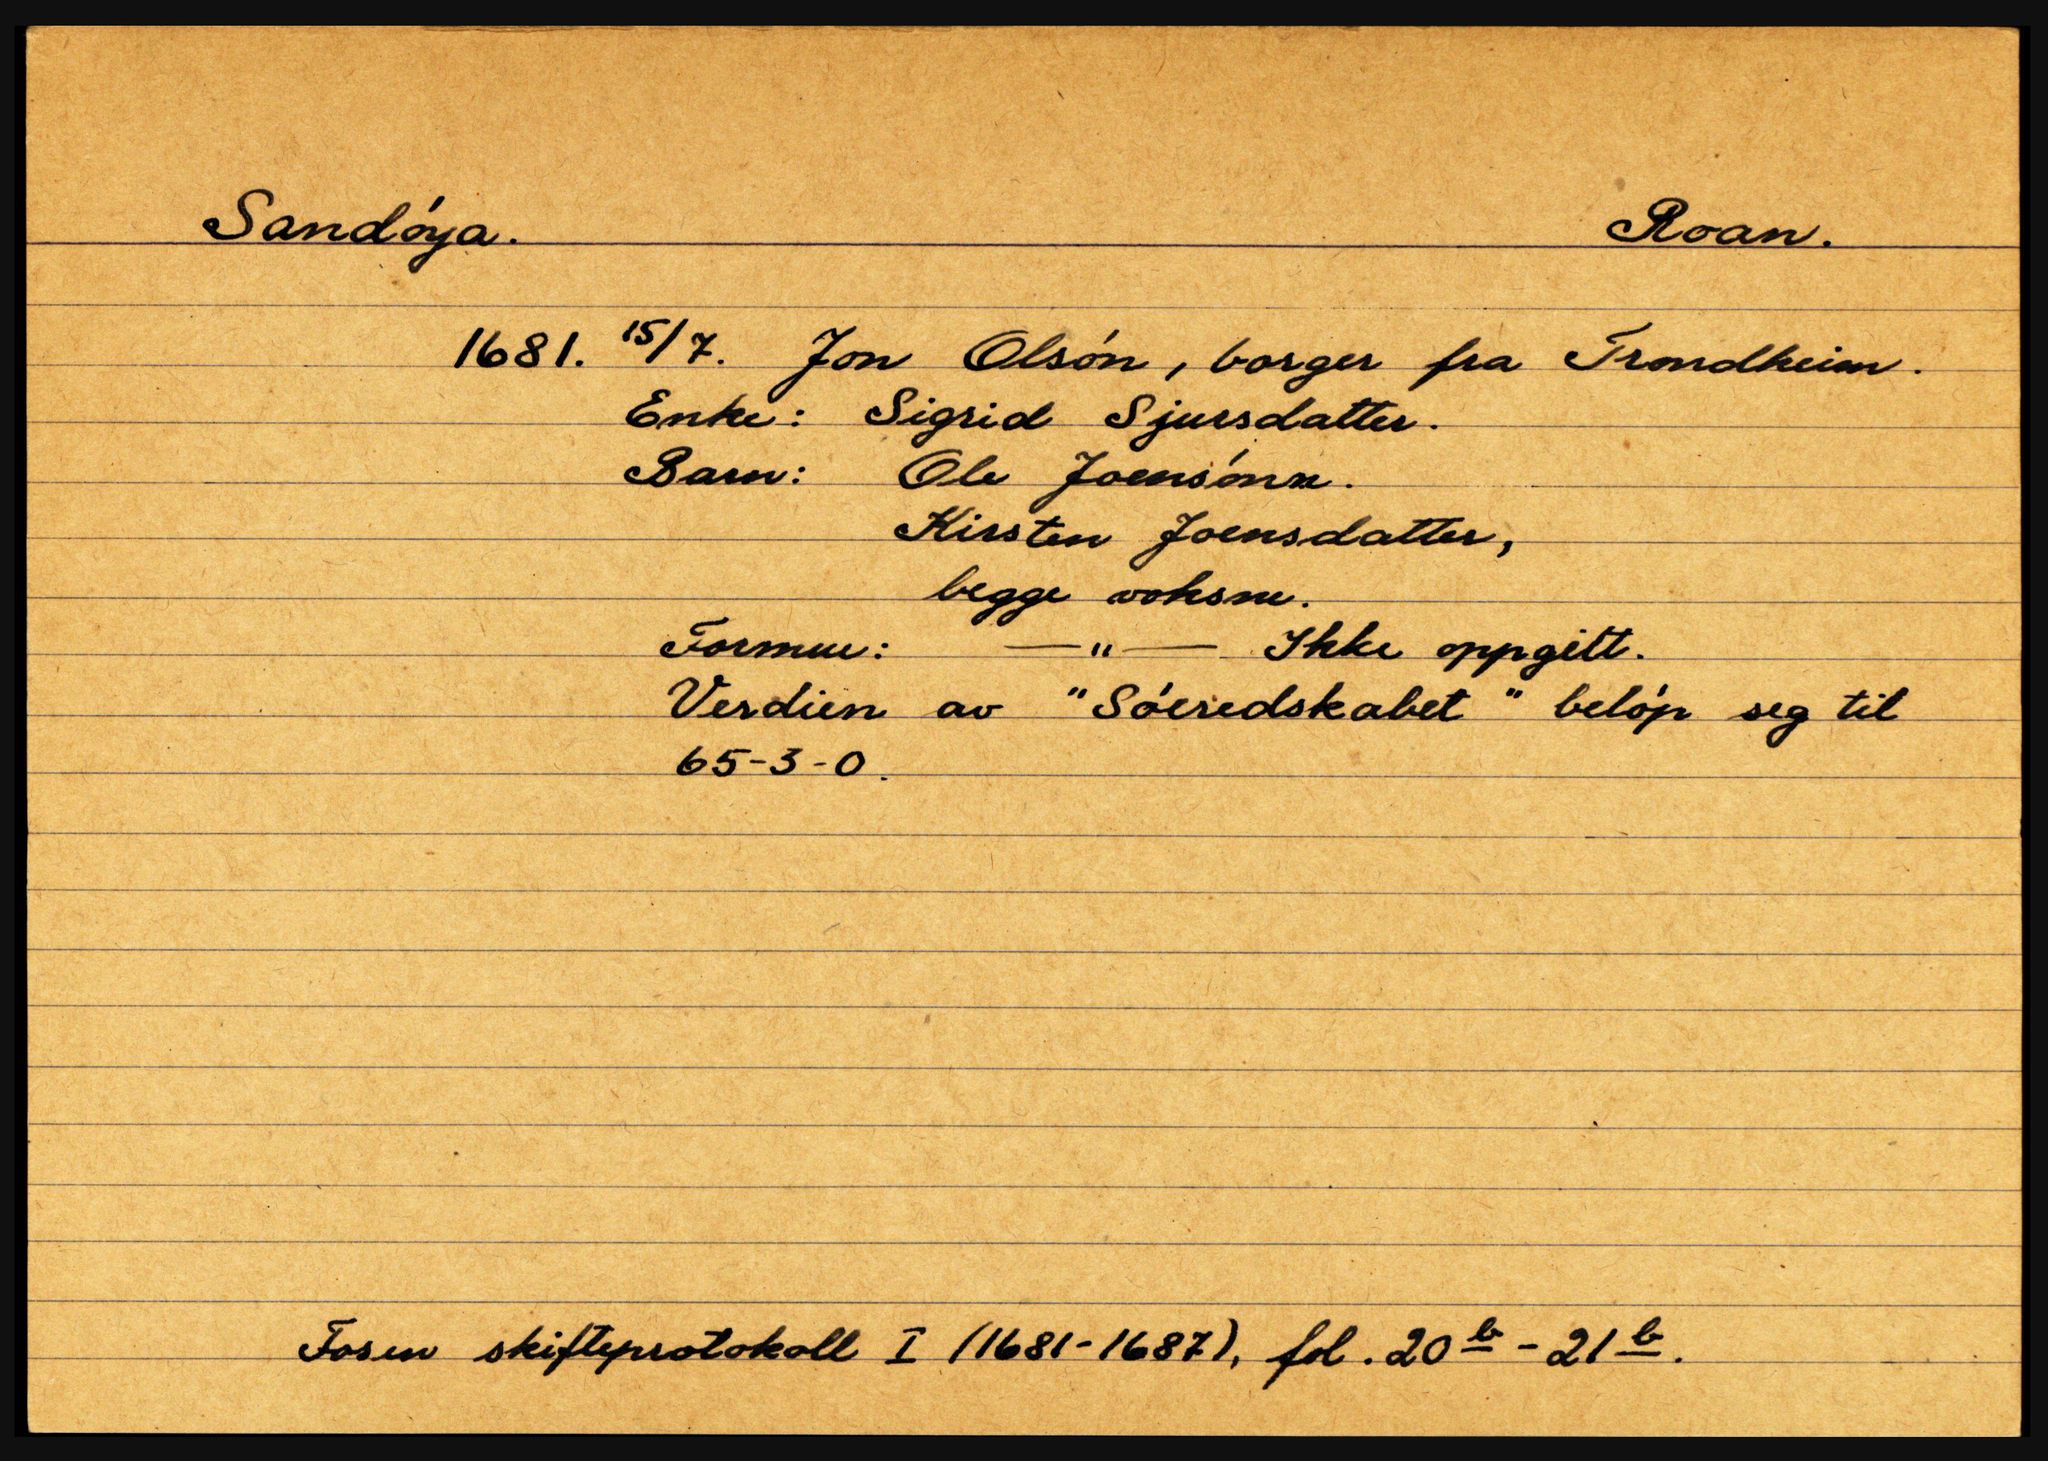 Sandóya. Roan.
1681. 15/7. Jon Olsón, borger fra Trondheim.
Enke: Sigrid Sjursdatter.
Barn: Ole Joensónn.
Kirsten Joensdatter,
begge voksne.
Formue: —"— Ikke oppgitt.
Verdien av "Sóeredskabet" belóp seg til
65-3-0.
Fosen skifteprotokoll I (1681-1687), fol. 20 b - 21 b.